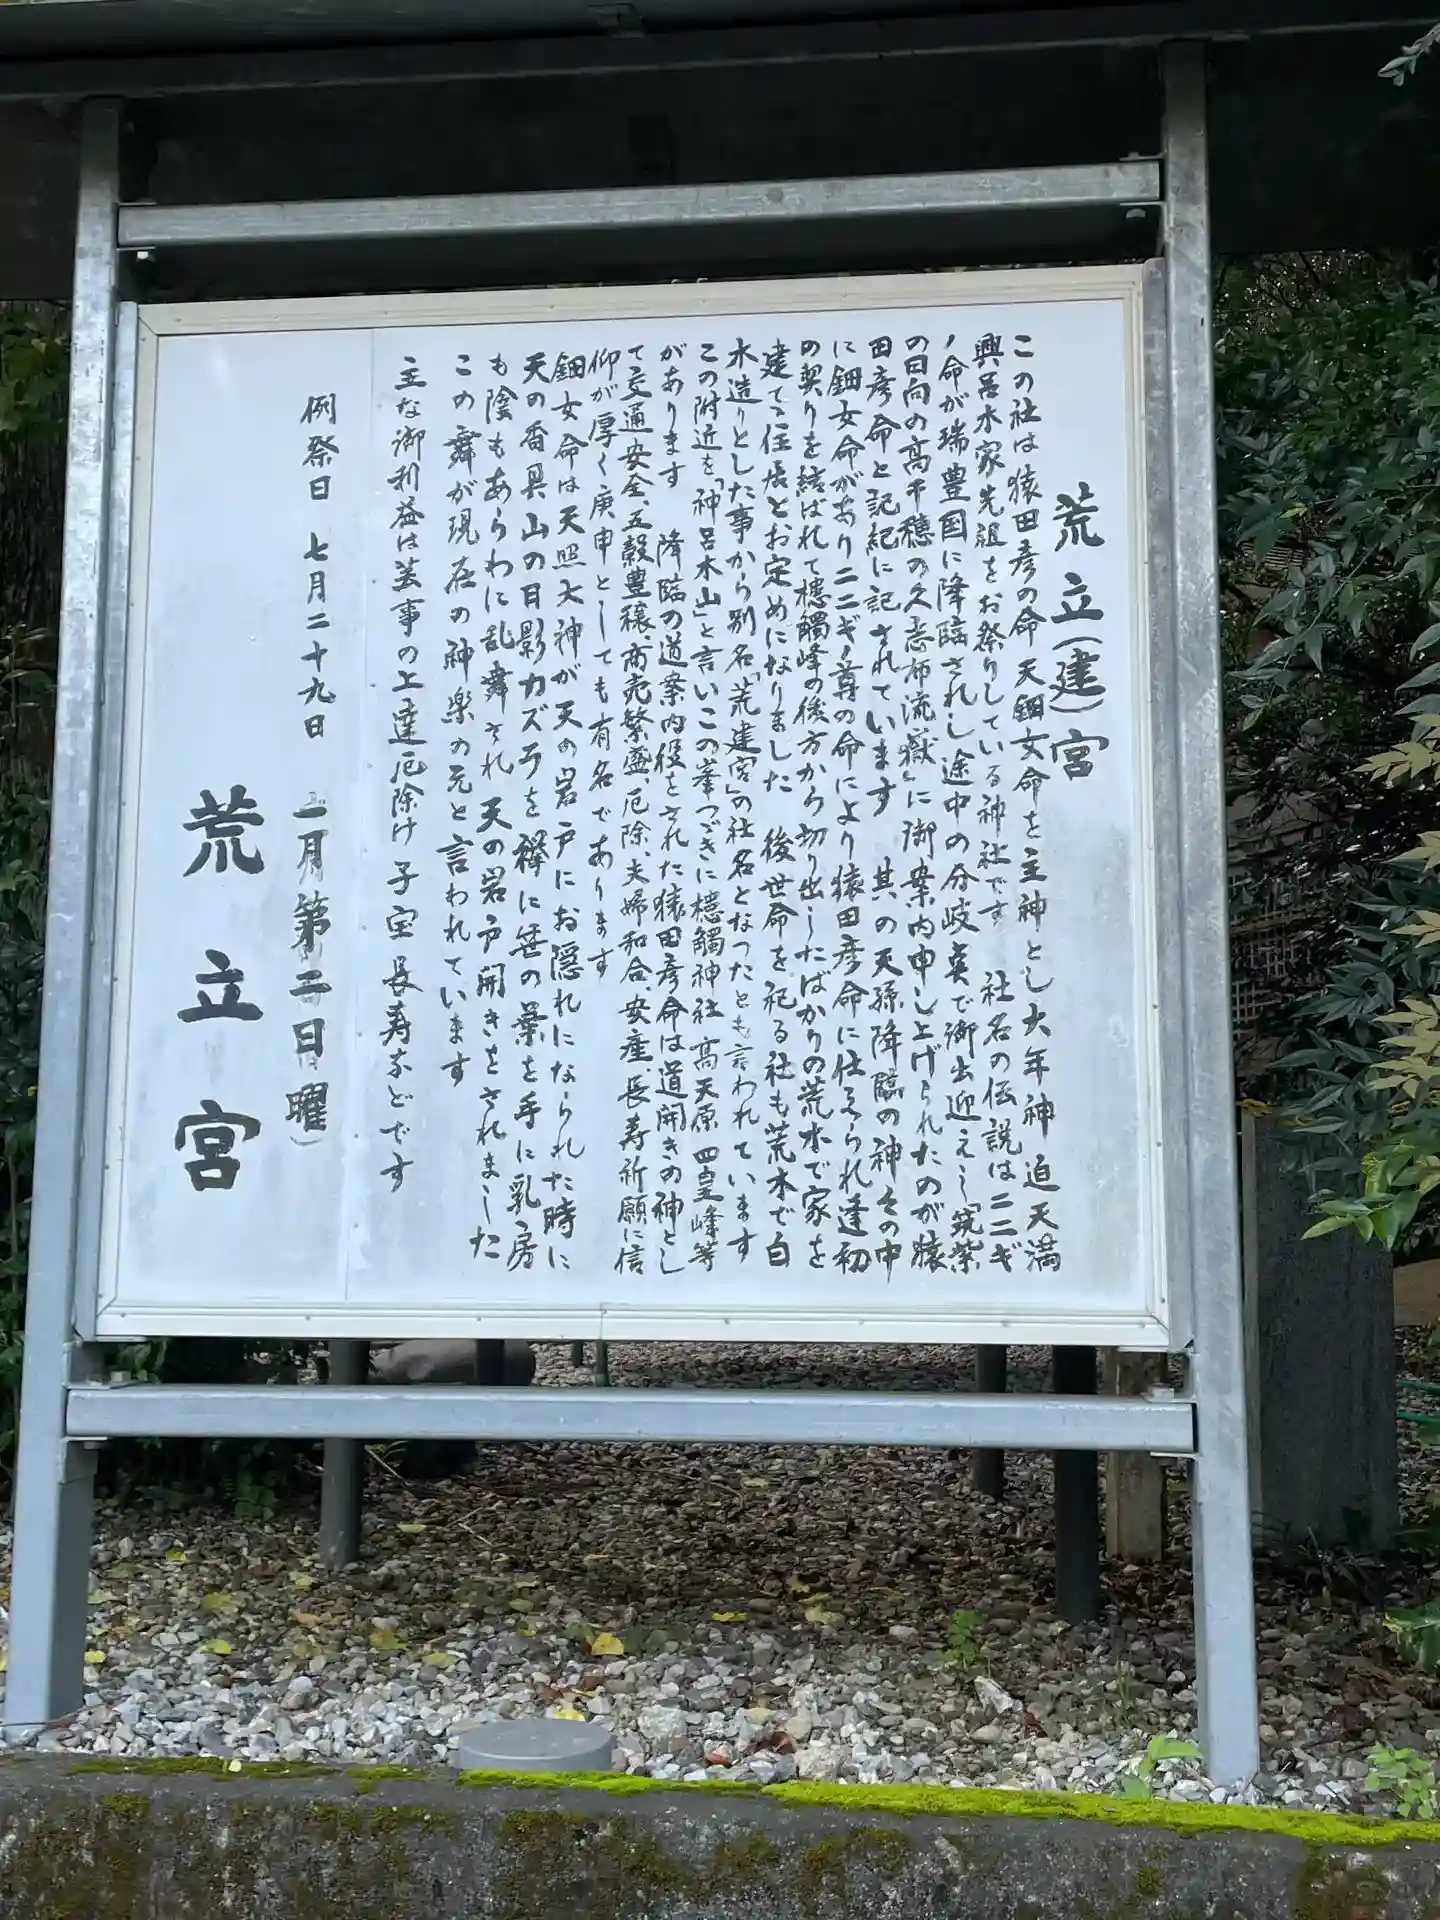 荒立(建)宮
この社は猿田彦の命 天鈿女命を主神とし大年神 迫天満
興呂木家先祖をお祭りしている神社です 社名の伝説はニニギ
ノ命が瑞豊国に降臨されし途中の分岐奌で御出迎えし「筑紫
の日向の高千穂の久志布流嶽」に御案内申し上げられたのが猿
田彦命と記紀に記されています 其の天孫降臨の神々の中
に鈿女命があり ニニギノ尊の命により猿田彦命に仕えられ逢初
の契りを結ばれて槵觸峰の後方から切り出したばかりの荒木で家を
建てて住居とお定めになりました 後世命を祀る社も荒木で白
木造りとした事から別名「荒建宮」の社名となったとも言われています
この附近を「神呂木山」と言いこの峯つづきに槵觸神社 高天原 四皇峰等
があります 降臨の道案内役をされた猿田彦命は道開きの神とし
て交通安全、五穀豊穣、商売繁盛、厄除、夫婦和合、安産、長寿祈願に信
仰が厚く庚申としても有名であります
鈿女命は天照大神が天の岩戸にお隠れになられた時に
天の香具山の日影カズラを襷に笹の葉を手に乳房
も陰もあらわに乱舞され 天の岩戸開きをされました
この舞が現在の神楽の元と言われています
主な御利益は芸事の上達厄除け 子宝 長寿などです
例祭日 七月二十九日 二月第二日曜)
荒立宮